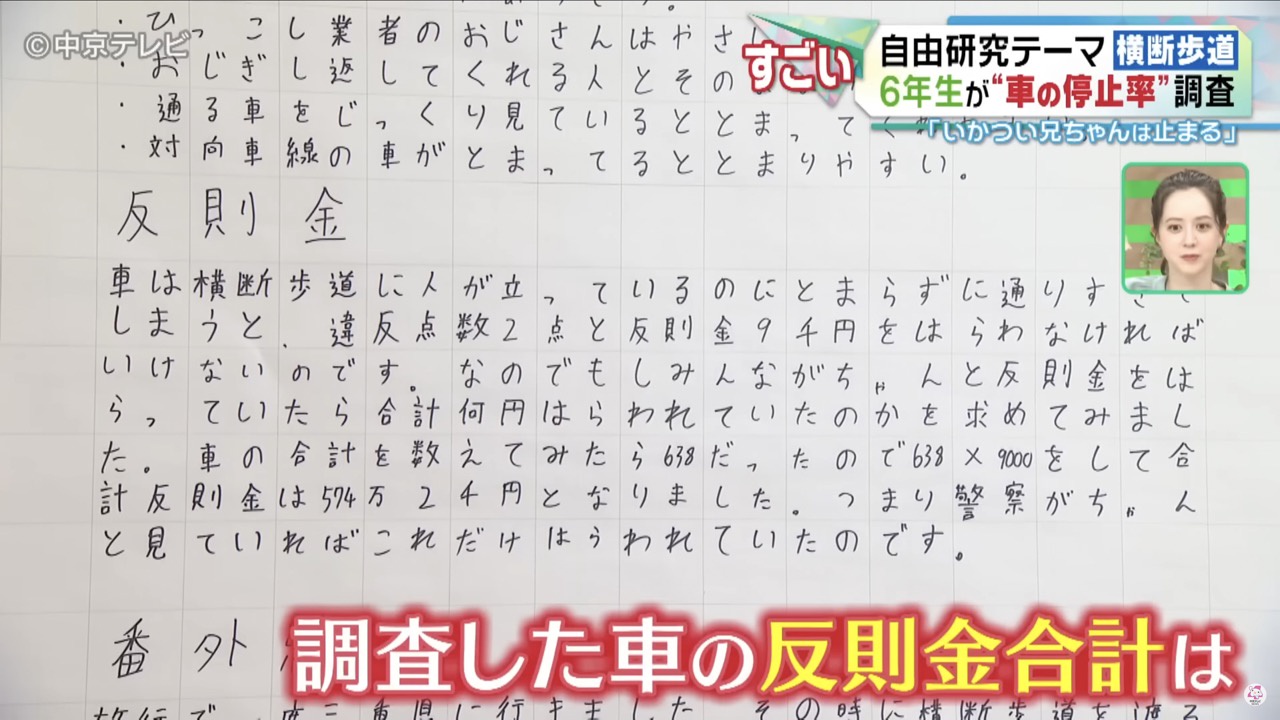 ©中京テレビ
すごい
自由研究テーマ 横断歩道
6年生が“車の停止率”調査
「いかつい兄ちゃんは止まる」
・ひっこし業者のおじさんはやさし
・おじぎし返してくれる人とその
・通る車をじっくり見ているととまってくれ
・対向車線の車がとまってるととまりやすい。
反則金
車は横断歩道に人が立っているのにとまらずに通りすぎて
しまうと、違反点数2点と反則金9千円をはらわなければ
いけないのです。なのでもしみんながちゃんと反則金をは
らっていたら合計何円はらわれていたのかを求めてみまし
た。車の合計を数えてみたら638だったので638×9000をして合
計反則金は574万2千円となりました。つまり警察がちゃん
と見ていればこれだけはらわれていたのです。
番外
調査した車の反則金合計は
旅行で一度三重県に行きました。その時に横断歩道を渡る